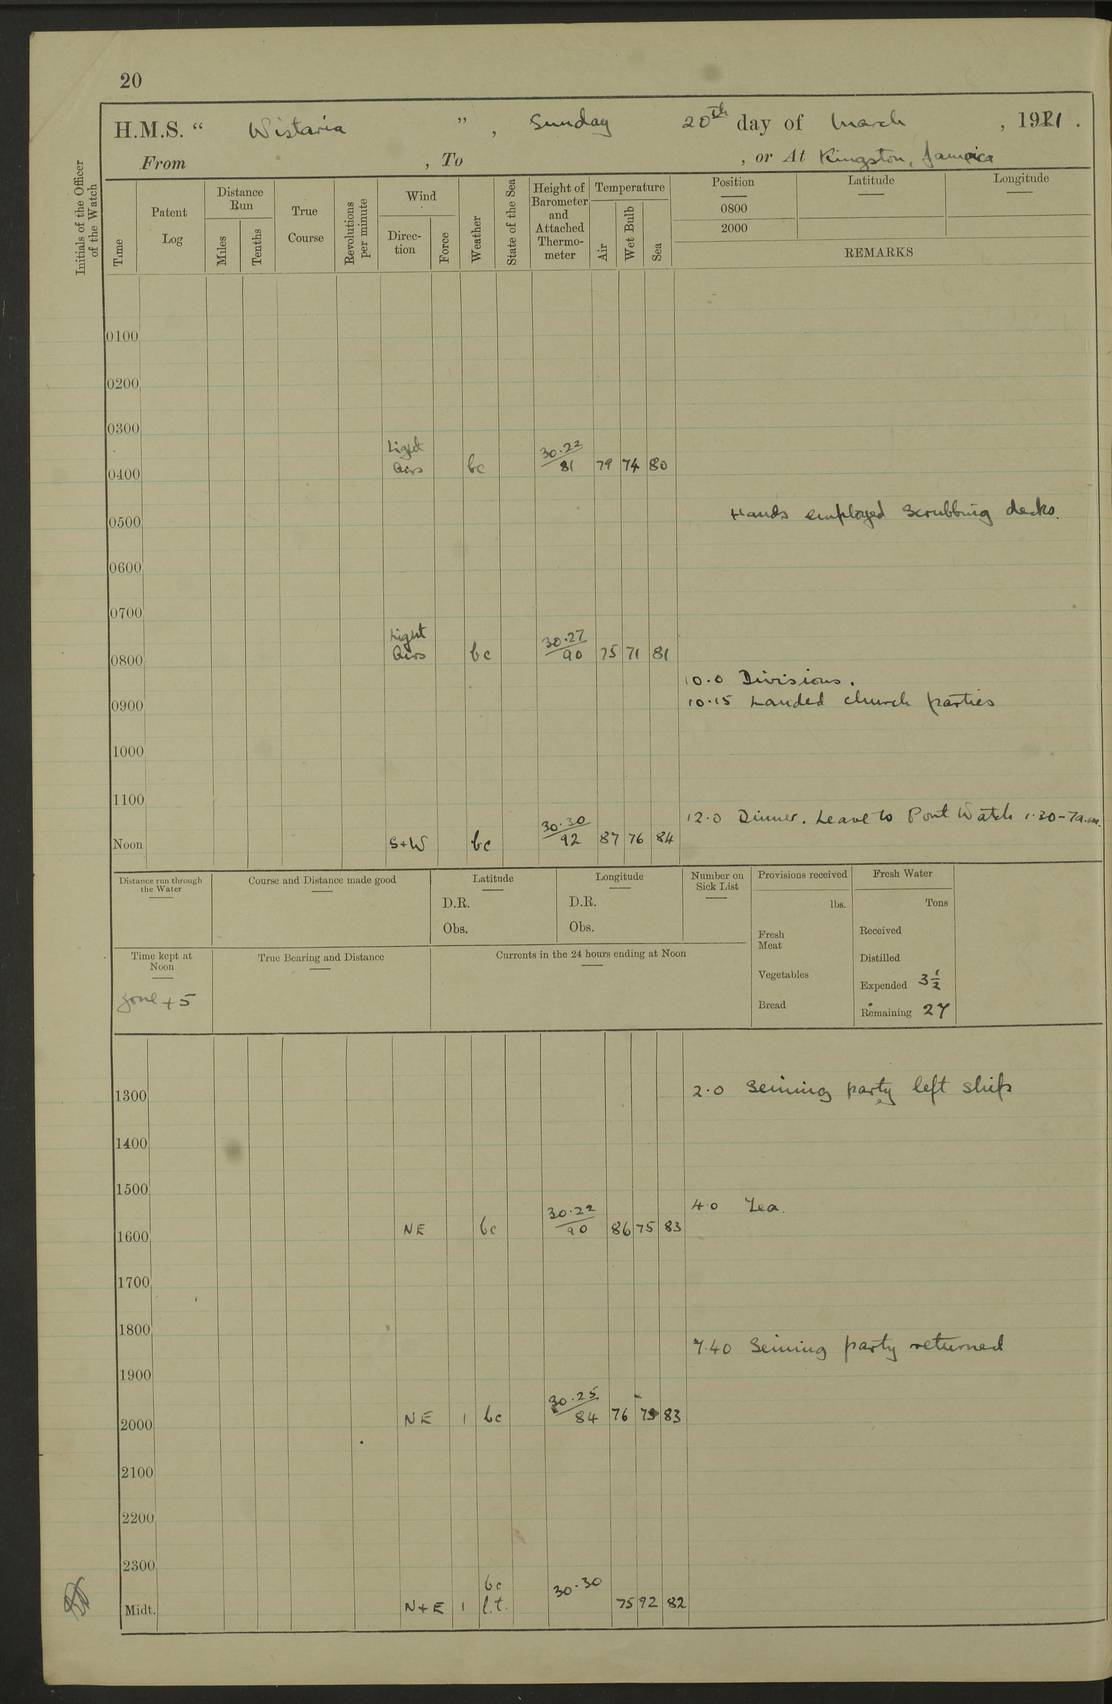 20
H.M.S. “ Wistaria ” , Sunday 20th day of March , 1921 .
From , To , or At Kingston, Jamaica
Initials of the Officer of the Watch
Time
Patent Log
Distance Run
Miles
Tenths
True Course
Revolutions per minute
Wind
Direction
Force
Weather
State of the Sea
Height of Barometer and Attached Thermometer
Temperature
Air
Wet Bulb
Sea
Position Latitude Longitude
0800
2000
REMARKS
0100
0200
0300
0400 Light Airs bc 30.22 / 81 79 74 80
Hands employed scrubbing decks.
0500
0600
0700
0800 Light Airs bc 30.27 / 90 75 71 81
10.0 Divisions.
0900 10.15 Landed church parties
1000
1100
12.0 Dinner. Leave to Port Watch 1.30-7a.m.
Noon S+W bc 30.30 / 92 87 76 84
Distance run through the Water
Course and Distance made good
Latitude
D.R.
Obs.
Longitude
D.R.
Obs.
Number on Sick List
Provisions received
lbs.
Fresh Meat
Vegetables
Bread
Fresh Water
Tons
Received
Distilled
Expended 3½
Remaining 27
Time kept at Noon
Zone +5
True Bearing and Distance
Currents in the 24 hours ending at Noon
1300 2.0 Seining party left ship
1400
1500
4.0 Tea.
1600 NE bc 30.22 / 90 86 75 83
1700
1800
7.40 Seining party returned
1900
2000 NE 1 bc 30.25 / 84 76 83
2100
2200
2300
Midt. N+E 1 bc l.t. 30.30 75 92 82